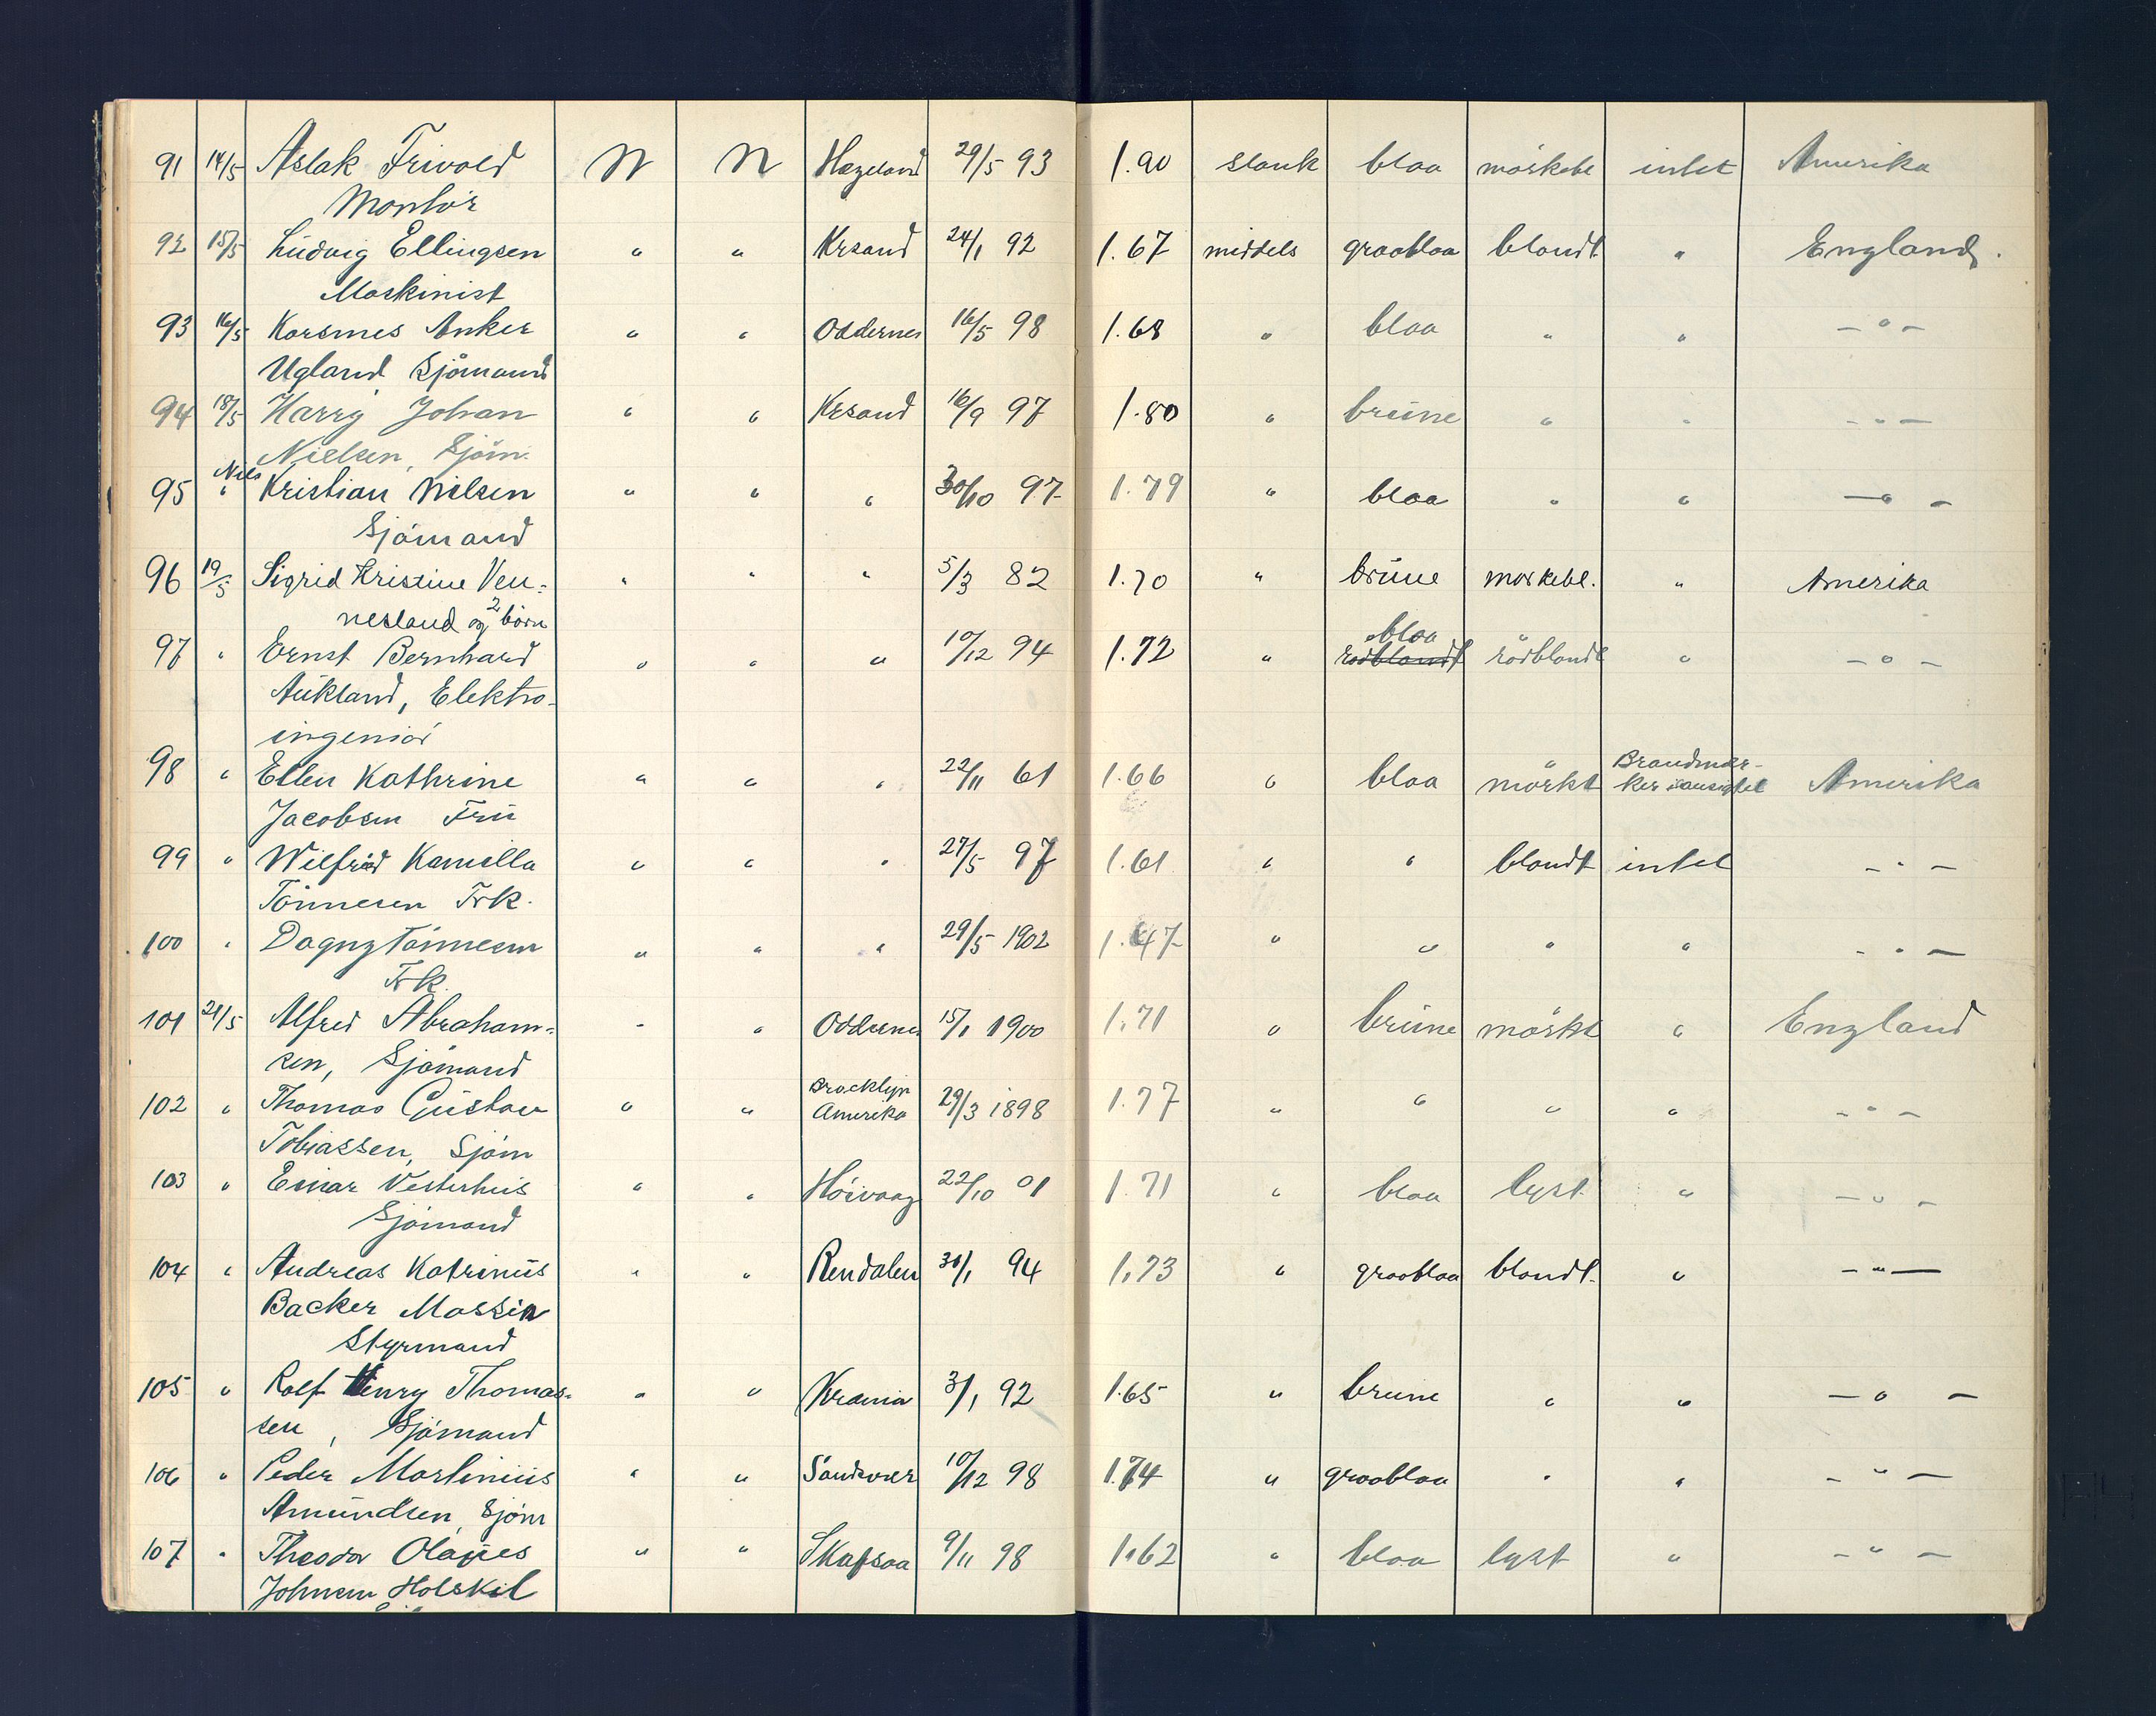 91 14/5 Aslak Frivold N N Hægeland 29/5 93 1.90 slank blaa mörkebl intet Amerika
Montör
92 15/5 Ludvig Ellingsen " " Krsand 24/1 92 1.67 middels graablaa blondt " England.
Maskinist
93 16/5 Korsmes Anker " " Oddernes 16/5 98 1.68 " blaa " " — " —
Ugland Sjömand
94 18/5 Harry Johan " " Krsand 16/9 97 1.80 " brune " " — " —
Nielsen, Sjöm.
Nils
95 " Kristian Nilsen " " " 30/10 97 1.79 " blaa " " — " —
Sjömand
96 19/5 Sigrid Kristine Ven= " " " 5/3 82 1.70 " brune mörkebl. " Amerika
nesland og 2 börn
blaa
97 " Ernst Bernhard " " " 10/12 94 1.72 " rödblondt rödblondt " — " —
Aukland, Elektro-
ingeniör
Brandmær-
98 " Ellen Kathrine " " " 22/11 61 1.66 " blaa mörkt ker i ansigtet Amerika
Jacobsen Fru
99 " Wilfrid Kamilla " " " 27/5 97 1.61 " " blondt intet — " —
Tönnesen Frk.
100 " Dagny Tönnesen " " " 29/5 1902 1.47 " " " " — " —
Frk.
101 21/5 Alfred Abraham= " " Oddernes 15/1 1900 1.71 " brune mörkt " England
sen, Sjömand
Brocklyn
102 " Thomas Gustav " " Amerika 29/3 1898 1.77 " " " " — " —
Tobiassen, Sjöm
103 " Einar Vesterhus " " Höivaag 22/10 01 1.71 " blaa lyst " — " —
Sjömand
104 " Andreas Katrinus " " Rendalen 30/1 94 1.73 " graablaa blondt " — " —
Backer Massin
Styrmand
105 " Rolf Henry Thomas= " " Krania 3/1 92 1.65 " brune " " — " —
sen, Sjömand
106 " Peder Martinius " " Sandsvær 10/12 98 1.74 " graablaa " " — " —
Amundsen, Sjöm
107 " Theodor Olajus " " Skafsaa 9/11 98 1.62 " blaa lyst " — " —
Johnsen Holskil